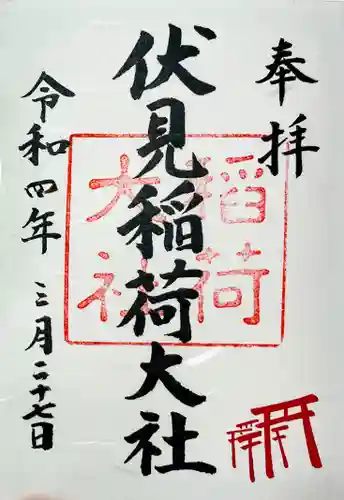 奉拝
伏見稲荷大社
稲荷
大社
令和四年
三月二十七日